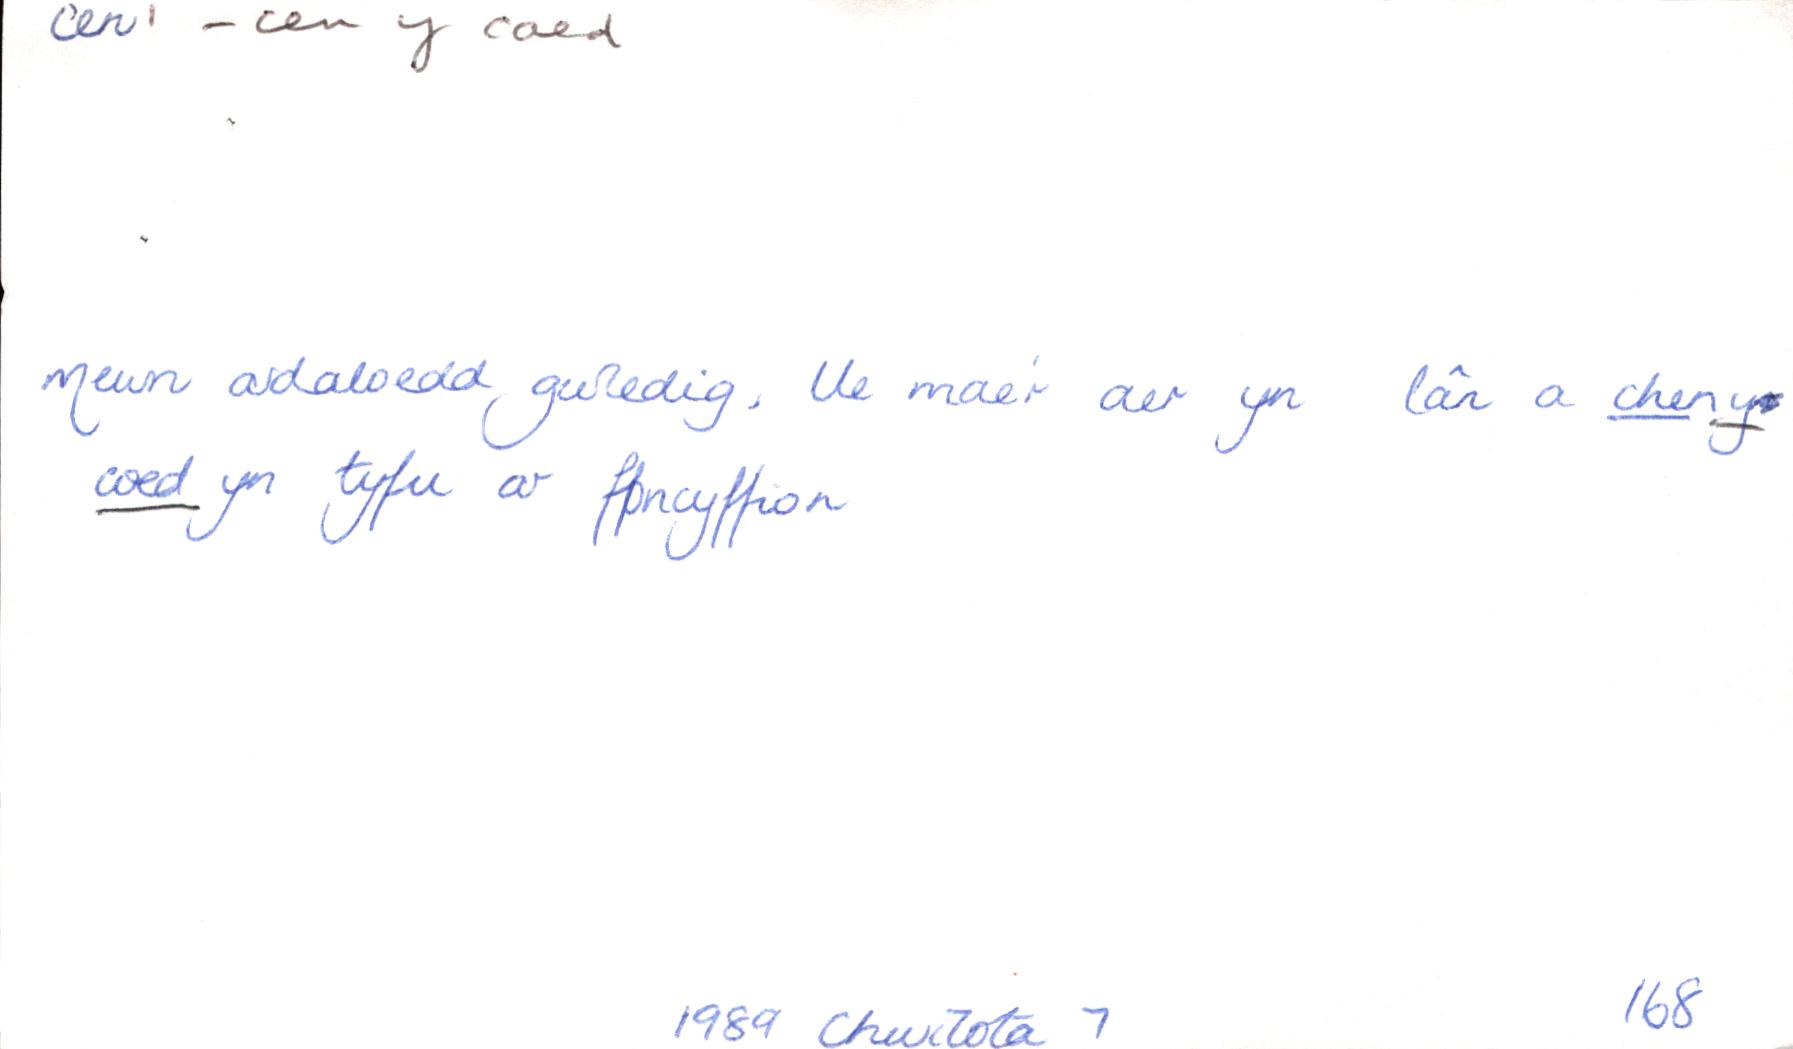 cen¹ – cen y coed
mewn ardaloedd gwledig, lle mae'r aer yn lân a chen y
coed yn tyfu ar ffoncyffion
1989 Chwilota 7
168